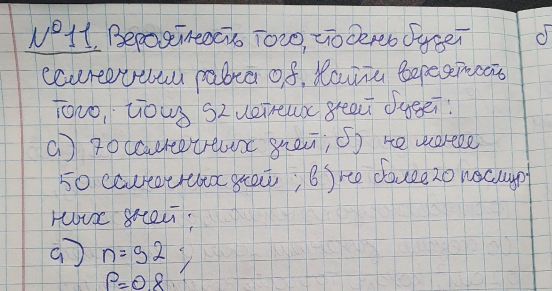 №11. Вероятность того, что день будет
солнечным равна 0,8. Найти вероятность
того, что из 92 летних дней будет:
а) 70 солнечных дней; б) не менее
50 солнечных дней; в) не более 20 пасмур-
ных дней;
а) n=92;
P=0,8
б